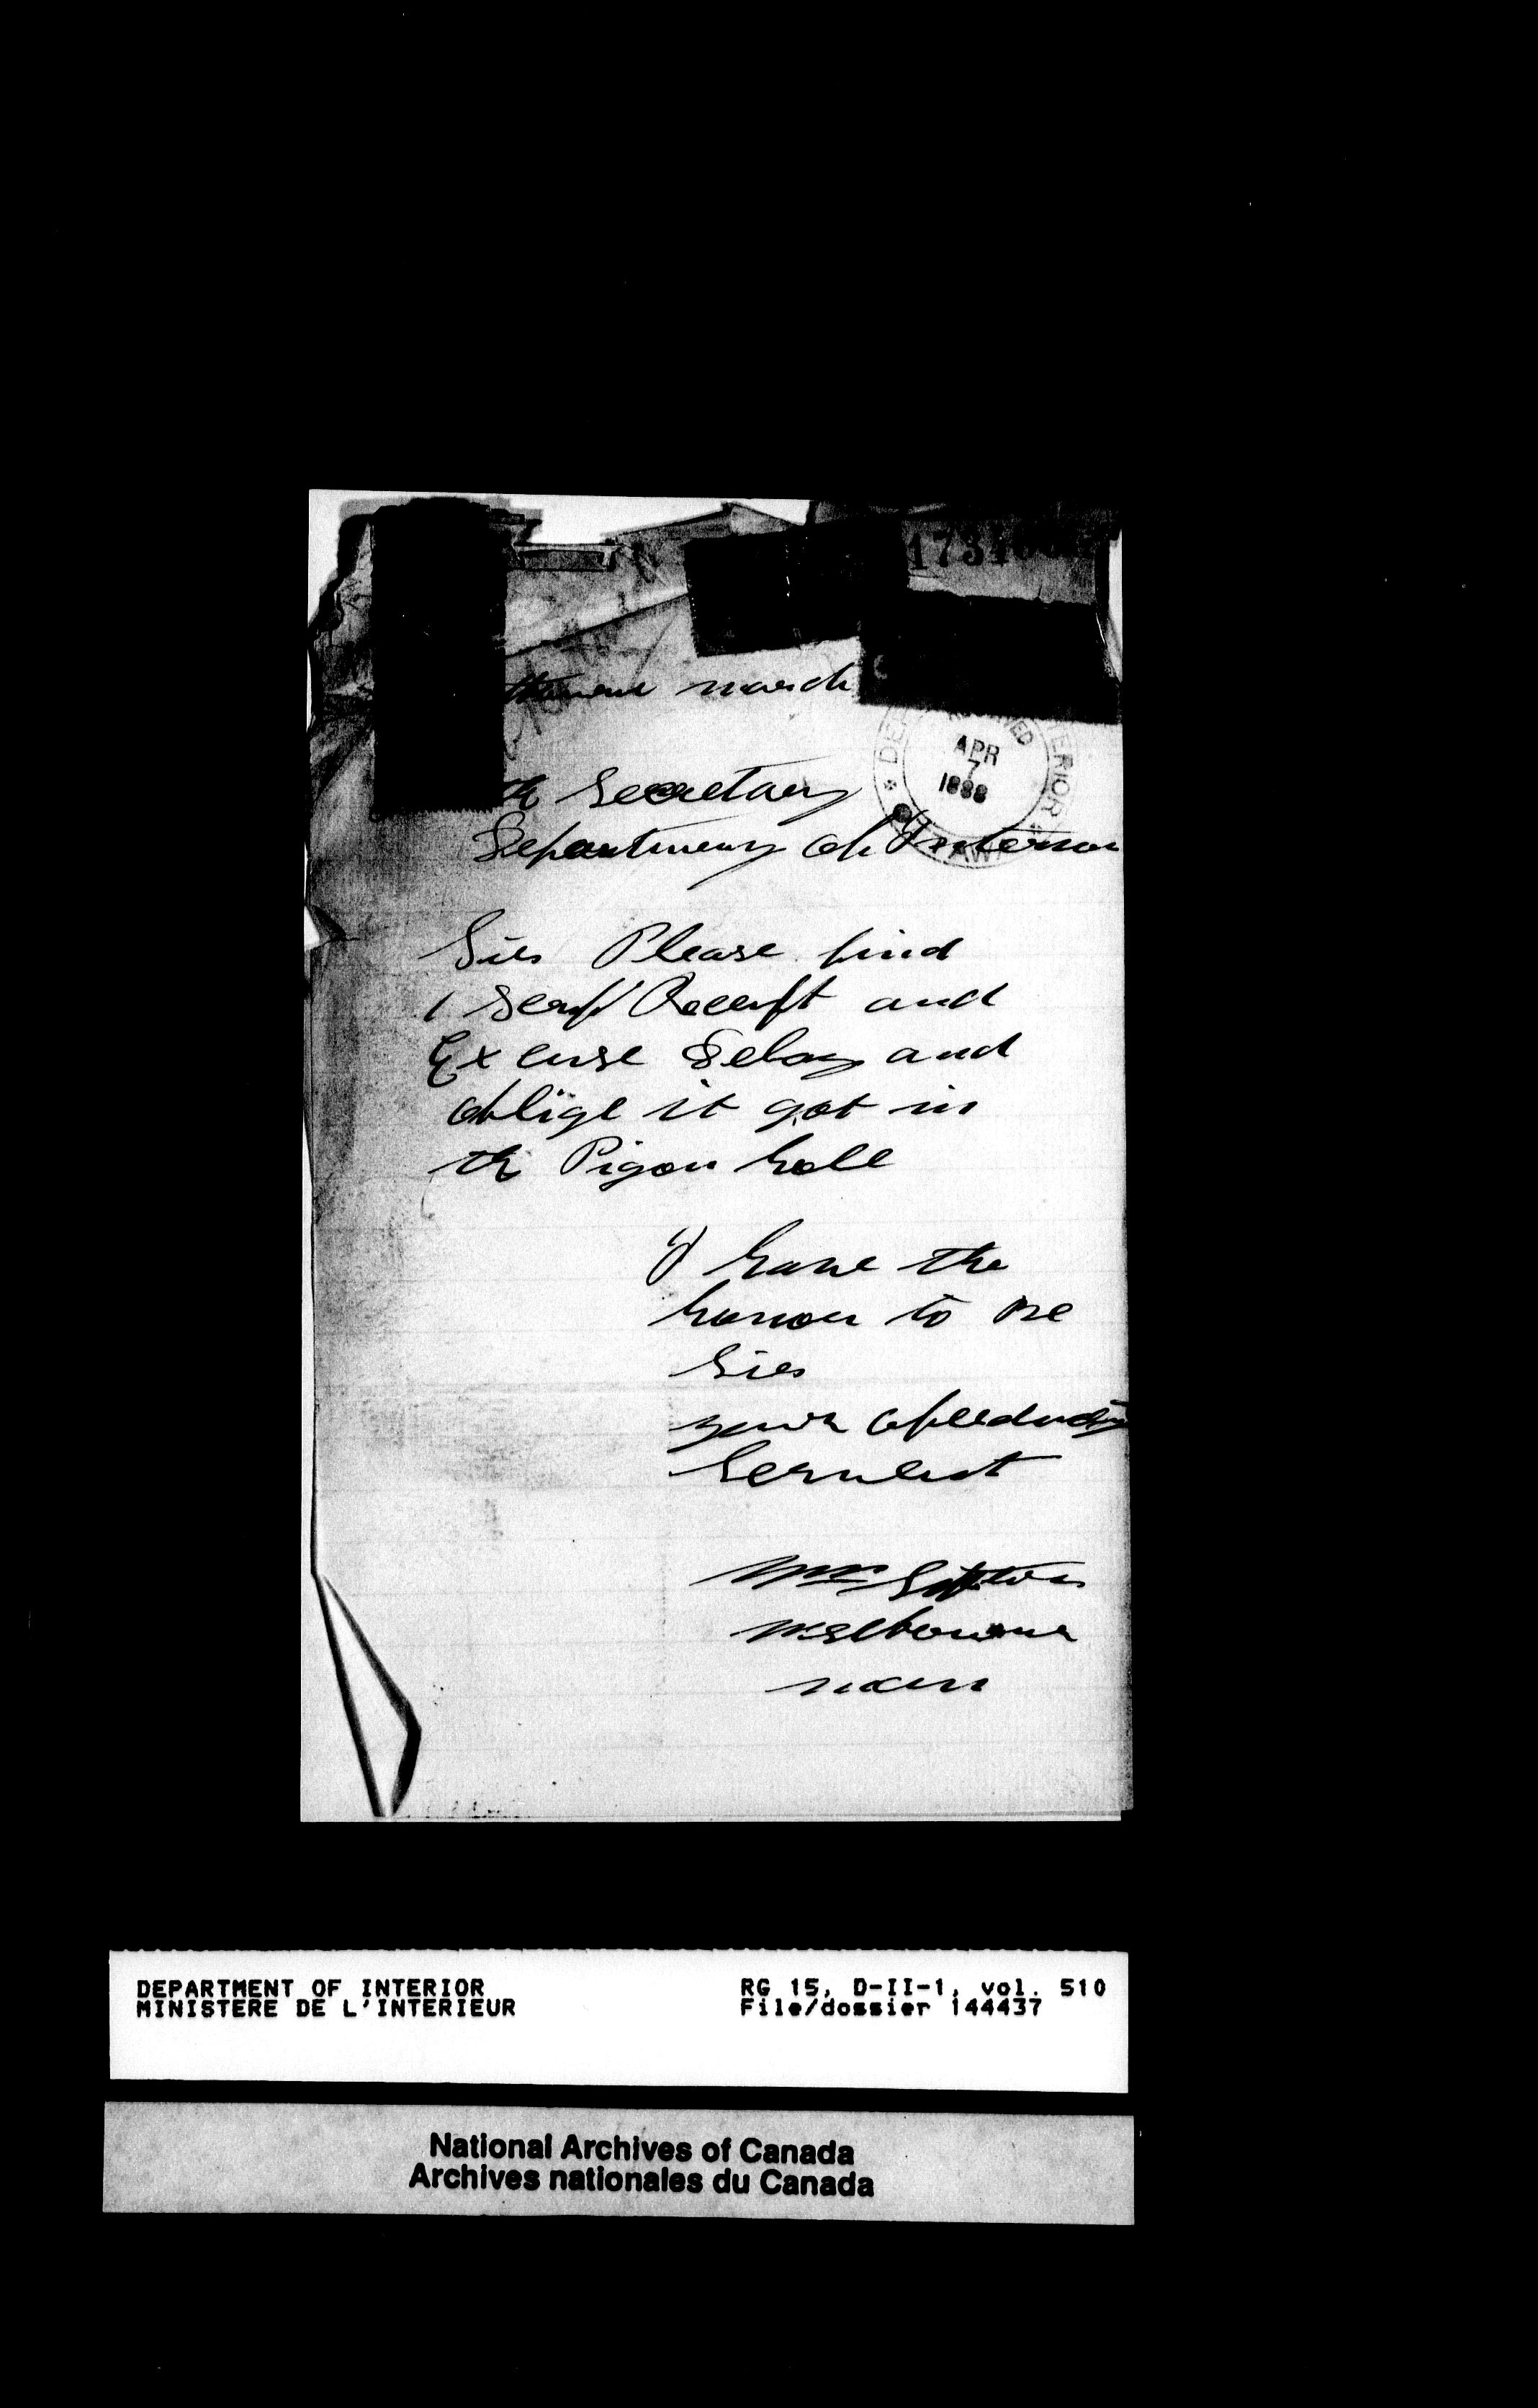 march
RECEIVED
APR
7
1888
OTTAWA
th Secretary
Department of Interior
Sir Please find
1 Scrip Receipt and
Excuse Delay and
oblige it got in
th Pigon hole
I have the
honor to be
Sir
your
Servent
Melbourne
man
DEPARTMENT OF INTERIOR
MINISTERE DE L'INTERIEUR
RG 15, D-II-1, vol. 510
File/dossier 144437
National Archives of Canada
Archives nationales du Canada